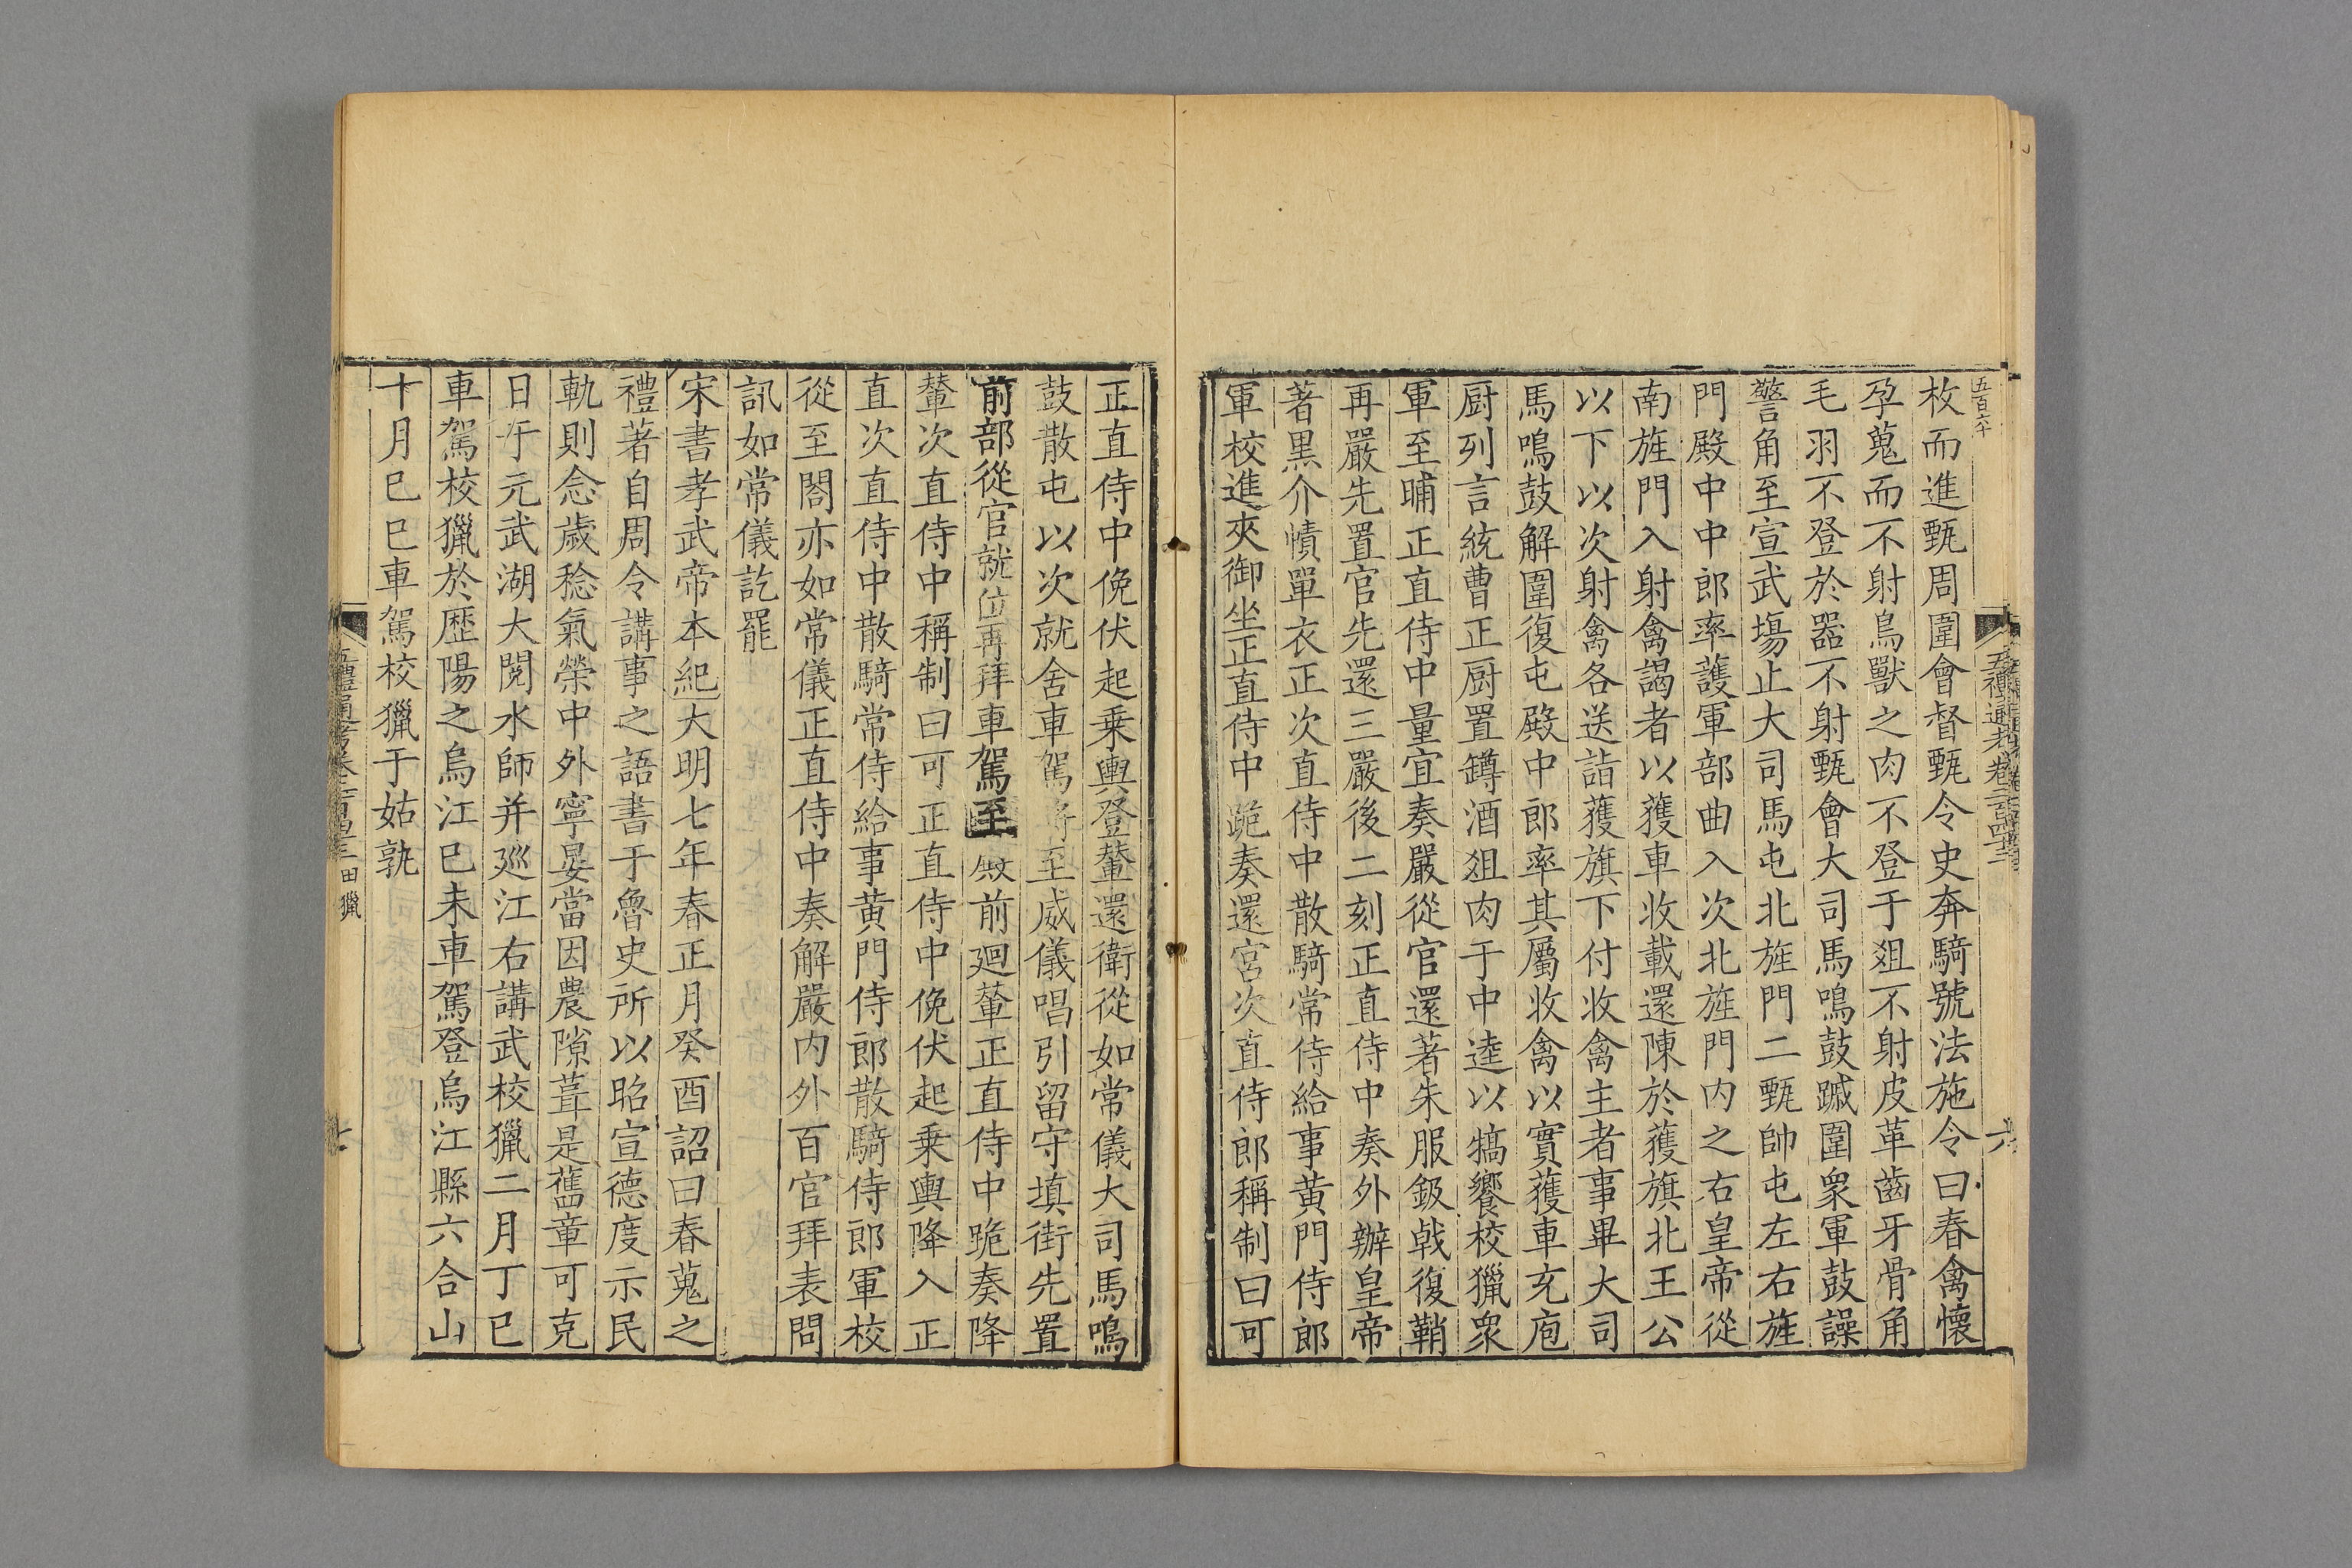 五百六十
枚而進甄周圍會督甄令史奔騎號法施令曰春禽懷
孕蒐而不射鳥獸之肉不登于俎不射皮革齒牙骨角
毛羽不登於器不射甄會大司馬鳴鼓蹴圍衆軍鼓譟
警角至宣武場止大司馬屯北旌門二甄帥屯左右旌
門殿中中郎率護軍部曲入次北旌門内之右皇帝從
南旌門入射禽謁者以獲車收載還陳於獲旗北王公
以下以次射禽各送詣獲旗下付收禽主者事畢大司
馬鳴鼓解圍復屯殿中郎率其屬收禽以實獲車充庖
厨列言統曹正厨置罇酒俎肉于中逵以犒饗校獵衆
軍至晡正直侍中量宜奏嚴從官還著朱服鈒戟復鞘
再嚴先置官先還三嚴後二刻正直侍中奏外辦皇帝
著黑介幘單衣正次直侍中散騎常侍給事黄門侍郎
軍校進夾御坐正直侍中跪奏還宮次直侍郎稱制曰可
五禮通考卷二百四十二
六
正直侍中俛伏起乗輿登輦還衛從如常儀大司馬鳴
鼓散屯以次就舍車駕將至威儀唱引留守填街先置
前部從官就位再拜車駕至
前廻輦正直侍中跪奏降
輦次直侍中稱制曰可正直侍中俛伏起乗輿降入正
直次直侍中散騎常侍給事黄門侍郎散騎侍郎軍校
從至閤亦如常儀正直侍中奏解嚴内外百官拜表問
訊如常儀訖罷
宋書孝武帝本紀大明七年春正月癸酉詔曰春蒐之
禮著自周令講事之語書于魯史所以昭宣德度示民
軌則念歲稔氣榮中外寧晏當因農隙葺是舊章可克
日于元武湖大閱水師并巡江右講武校獵二月丁巳
車駕校獵於歷陽之烏江己未車駕登烏江縣六合山
十月己巳車駕校獵于姑孰
田獵
七